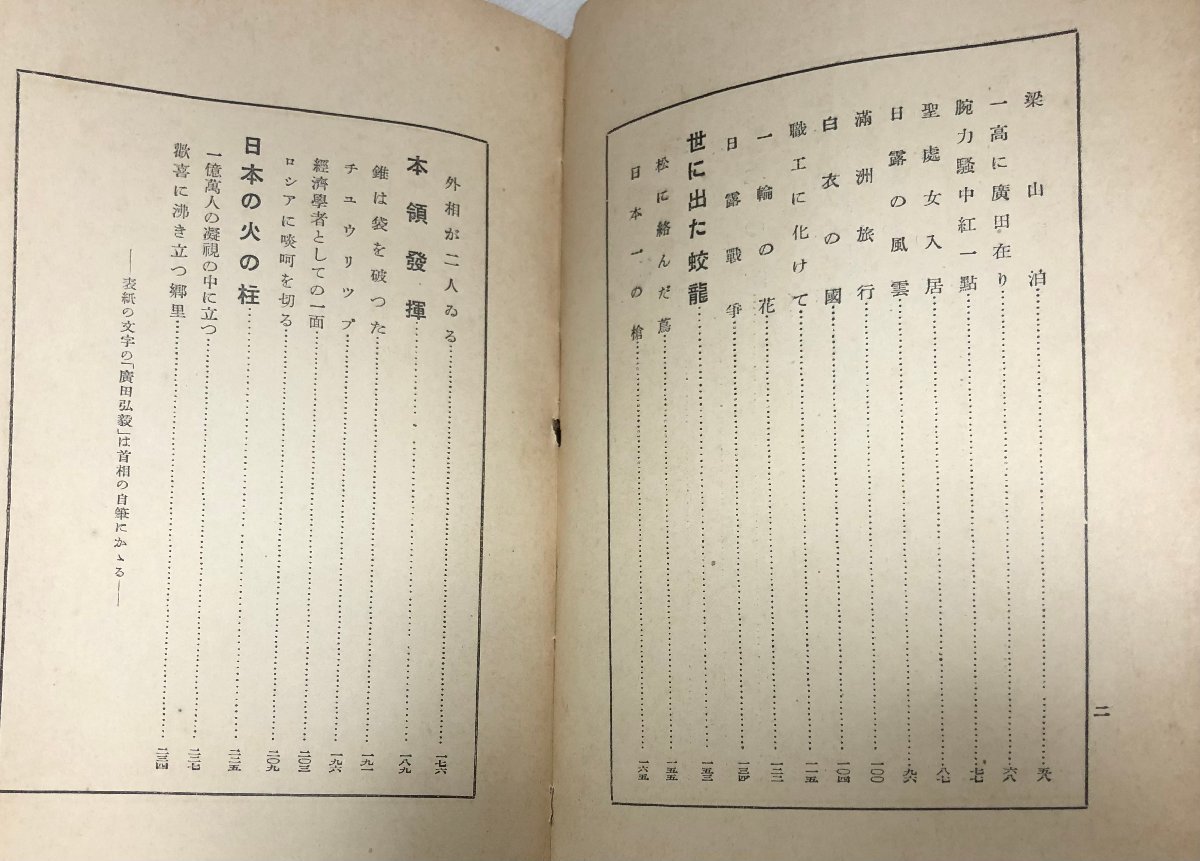 二
梁山泊……五八
一高に廣田在り……六八
腕力騷中紅一點……七七
聖處女入居……八七
日露の風雲……九六
滿洲旅行……一〇〇
白衣の國……一〇四
職工に化けて……一一五
一輪の花……一二二
日露戰爭……一三四
世に出た蛟龍……一五三
松に絡んだ蔦……一五五
日本一の槍……一六五
外相が二人ゐる……一七六
本領發揮……一八九
錐は袋を破つた……一九一
チユウリツプ……一九六
經濟學者としての一面……二〇三
ロシアに啖呵を切る……二〇九
日本の火の柱……二二五
一億萬人の凝視の中に立つ……二二七
歡喜に沸き立つ鄕里……二三四
――表紙の文字の「廣田弘毅」は首相の自筆にかゝる――